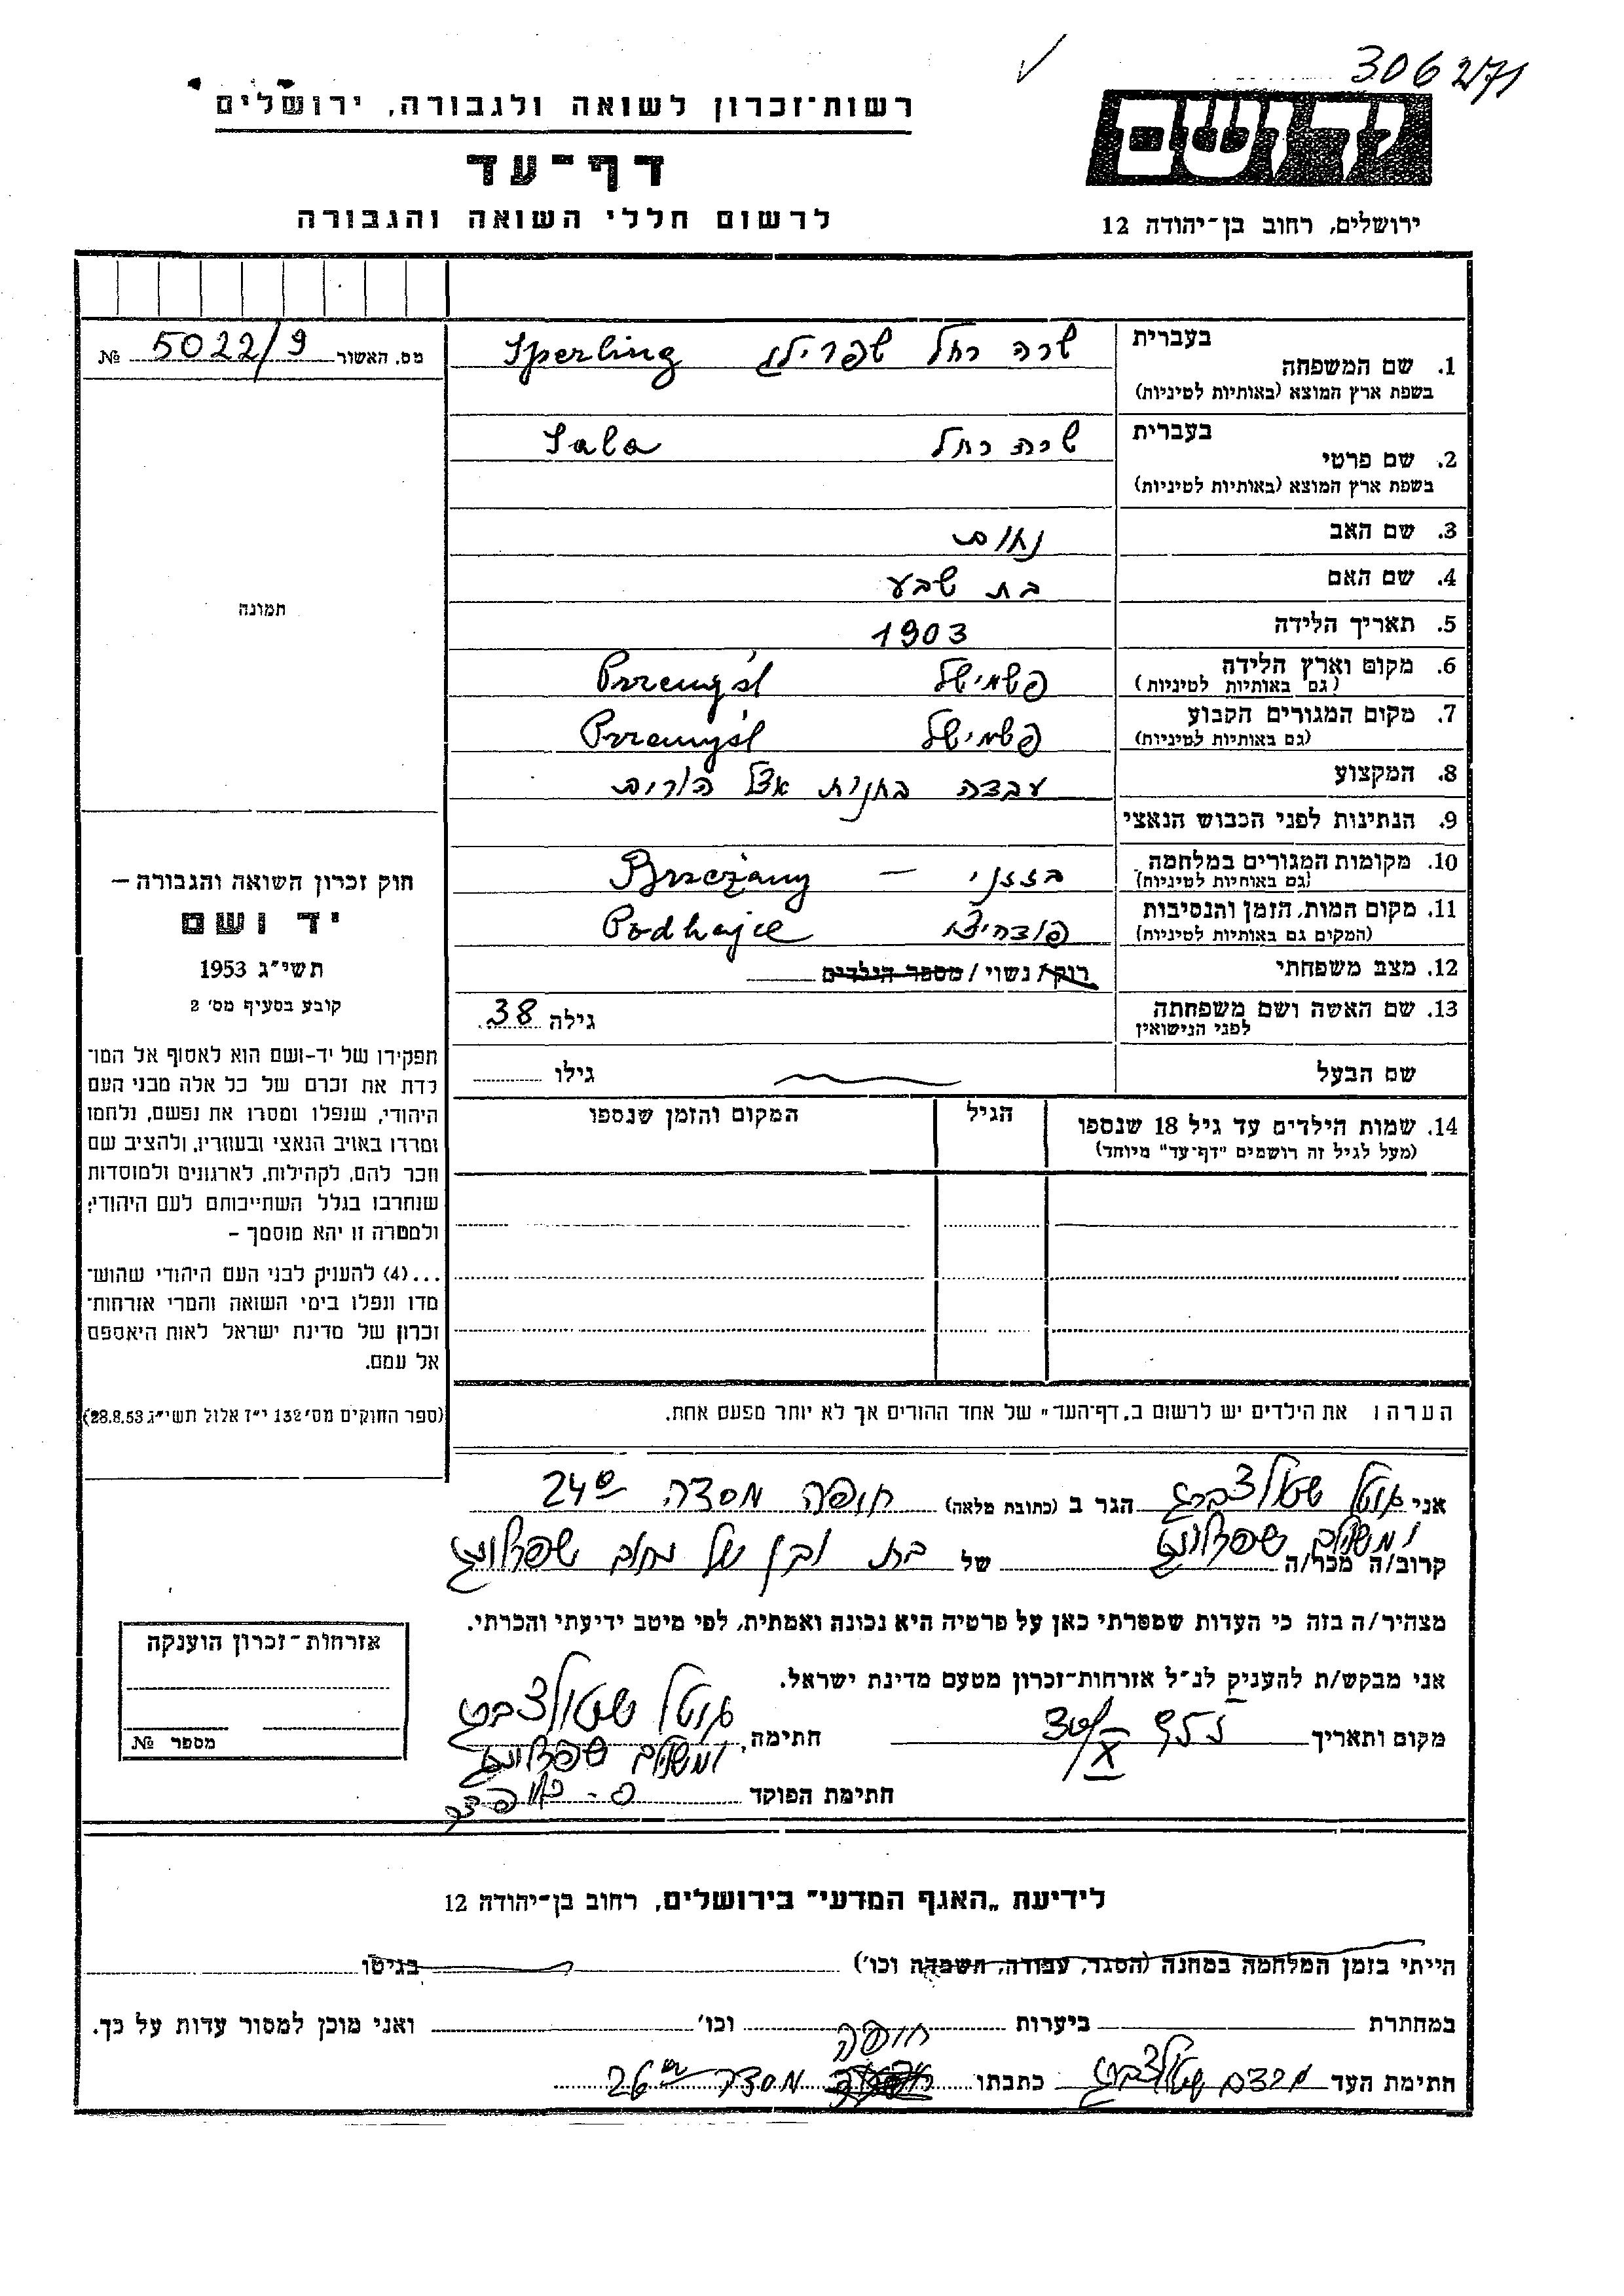 306271
רשות־זכרון לשואה ולגבורה, ירושלים
יד ושם
דף־עד
לרשום חללי השואה והגבורה
ירושלים, רחוב בן־יהודה 12
מס. האשור 5022/9 №
1. שם המשפחה
בעברית
שרה רחל שפרילג Sperling
בשפת ארץ המוצא (באותיות לטיניות)
2. שם פרטי
בעברית
שרה רחל Sala
בשפת ארץ המוצא (באותיות לטיניות)
3. שם האב נחום
4. שם האם בת שבע
5. תאריך הלידה 1903
6. מקום וארץ הלידה פשמישל Przemyśl
(גם באותיות לטיניות)
7. מקום המגורים הקבוע פשמישל Przemyśl
(גם באותיות לטיניות)
8. המקצוע עבדה בחנות אצל הורים
9. הנתינות לפני הכבוש הנאצי
10. מקומות המגורים במלחמה Brzeżany –
(גם באותיות לטיניות)
11. מקום המות, הזמן והנסיבות Podhajce
(המקום גם באותיות לטיניות)
12. מצב משפחתי רוק/ נשוי / מספר הילדים
13. שם האשה ושם משפחתה גילה 38
לפני הנישואין
שם הבעל גילו
14. שמות הילדים עד גיל 18 שנספו הגיל המקום והזמן שנספו
(מעל לגיל זה רושמים "דף־עד" מיוחד)
הערה: את הילדים יש לרשום ב„דף־העד" של אחד ההורים אך לא יותר מפעם אחת.
תמונה
חוק זכרון השואה והגבורה –
יד ושם
תשי״ג 1953
קובע בסעיף מס׳ 2
תפקידו של יד-ושם הוא לאסוף אל המו־
לדת את זכרם של כל אלה מבני העם
היהודי, שנפלו ומסרו את נפשם, נלחמו
ומרדו באויב הנאצי ובעוזריו, ולהציב שם
וזכר להם, לקהילות, לארגונים ולמוסדות
שנחרבו בגלל השתייכותם לעם היהודי;
ולמטרה זו יהא מוסמך –
...(4) להעניק לבני העם היהודי שהוש־
מדו ונפלו בימי השואה והמרי אזרחות־
זכרון של מדינת ישראל לאות היאספם
אל עמם.
(ספר החוקים מס׳ 132 י״ז אלול תשי״ג 28.8.53)
אני הגר ב (כתובת מלאה) חיפה מסדה 24
קרוב/ה מכר/ה של בת ובן של נחום
מצהיר/ה בזה כי העדות שמסרתי כאן על פרטיה היא נכונה ואמתית, לפי מיטב ידיעתי והכרתי.
אני מבקש/ת להעניק לנ״ל אזרחות־זכרון מטעם מדינת ישראל.
מקום ותאריך חתימה,
חתימת הפוקד
אזרחות־זכרון הוענקה
מספר №
לידיעת „האגף המדעי" בירושלים, רחוב בן־יהודה 12
הייתי בזמן המלחמה במחנה (הסגר, עבודה, השמדה וכו׳) בגיטו
במחתרת ביערות וכו׳ ואני מוכן למסור עדות על כך.
חיפה
חתימת העד כתבתו מסדה 26